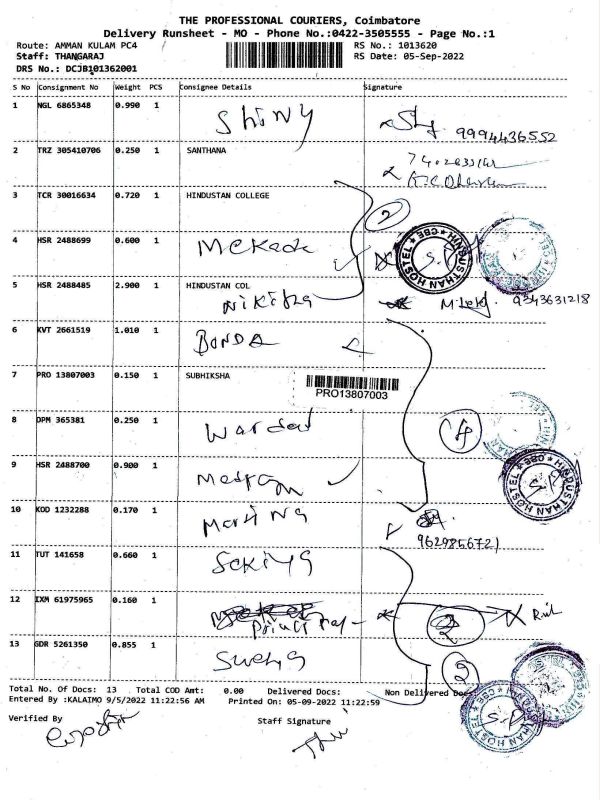 THE PROFESSIONAL COURIERS, Coimbatore
Delivery Runsheet - MO - Phone No.:0422-3505555 - Page No.:1
Route: AMMAN KULAM PC4 RS No.: 1013620
Staff: THANGARAJ RS Date: 05-Sep-2022
DRS No.: DCJB101362001
S No Consignment No Weight PCS Consignee Details Signature
1 NGL 6865348 0.990 1 Shiny 9994436552
2 TRZ 305410706 0.250 1 SANTHANA
3 TCR 30016634 0.720 1 HINDUSTAN COLLEGE
2
4 HSR 2488699 0.600 1 HINDUSTHAN HOSTEL CBE
5 HSR 2488485 2.900 1 HINDUSTAN COL
Nikitha 9343631218
6 KVT 2661519 1.010 1 BONDA
7 PRO 13807003 0.150 1 SUBHIKSHA
PRO13807003
8 DPM 365381 0.250 1 Warden 4
9 HSR 2488700 0.900 1 HINDUSTHAN HOSTEL CBE
10 KOD 1232288 0.170 1
9629856721
11 TUT 141658 0.660 1
12 IXM 61975965 0.160 1 2
13 GDR 5261350 0.855 1 2
Total No. Of Docs: 13 Total COD Amt: 0.00 Delivered Docs: Non Delivered Docs:
Entered By :KALAIMO 9/5/2022 11:22:56 AM Printed On: 05-09-2022 11:22:59
Verified By Staff Signature